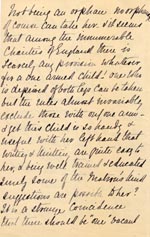 Not being an orphan no orphanage
of course can take her. It seems
that among the innumerable
Charities of England there is
scarcely any provision whatever
for a one armed child! one who
is deprived of both legs can be taken
but the rules almost invariably
exclude those with only one arm -
& yet this child is so handy &
useful with her left hand that
writing & knitting are quite easy to
her, & being well trained & educated
surely some of the Matron's kind
suggestions are possible to her?
It is a strange coincidence
that there should be "one" vacant